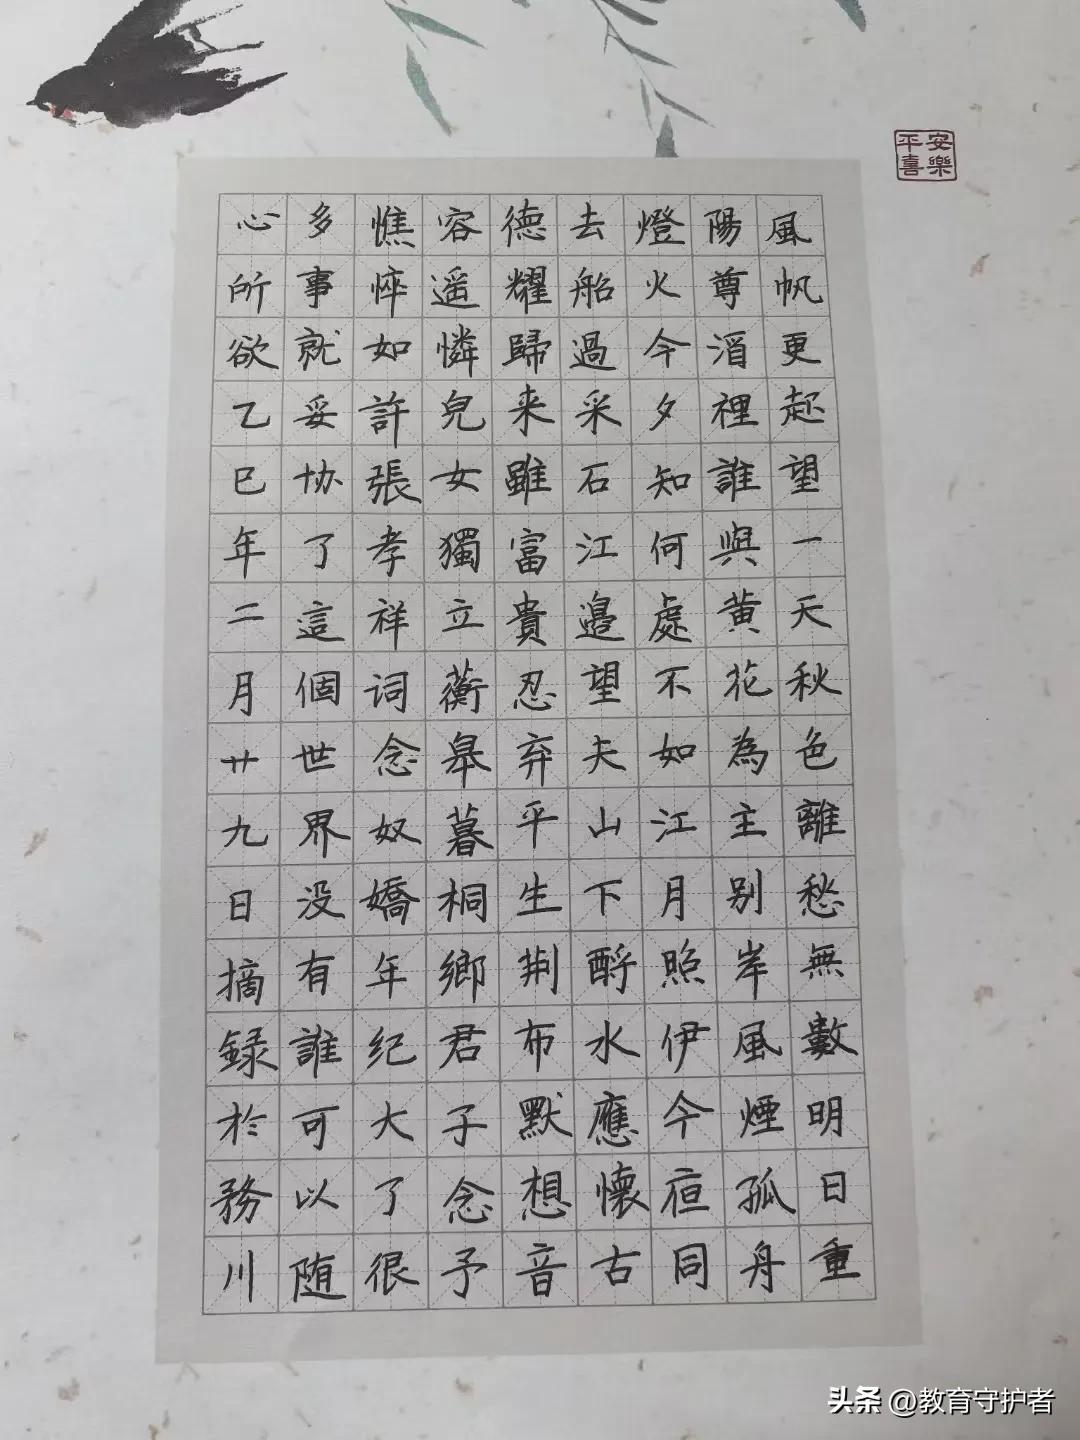 風帆更起望一天秋色離愁無數明日重
陽尊酒裡誰與黄花為主别岸風煙孤舟
燈火今夕知何處不如江月照伊今亱同
去船過采石江邊望夫山下酹水應懷古
德耀歸来雖富貴忍弃平生荆布默想音
容遥憐兒女獨立蘅皋暮桐鄉君子念予
憔悴如許張孝祥词念奴嬌年纪大了很
多事就妥协了這個世界没有誰可以随
心所欲乙巳年二月廿九日摘録於務川
安樂
平喜
头条 @教育守护者